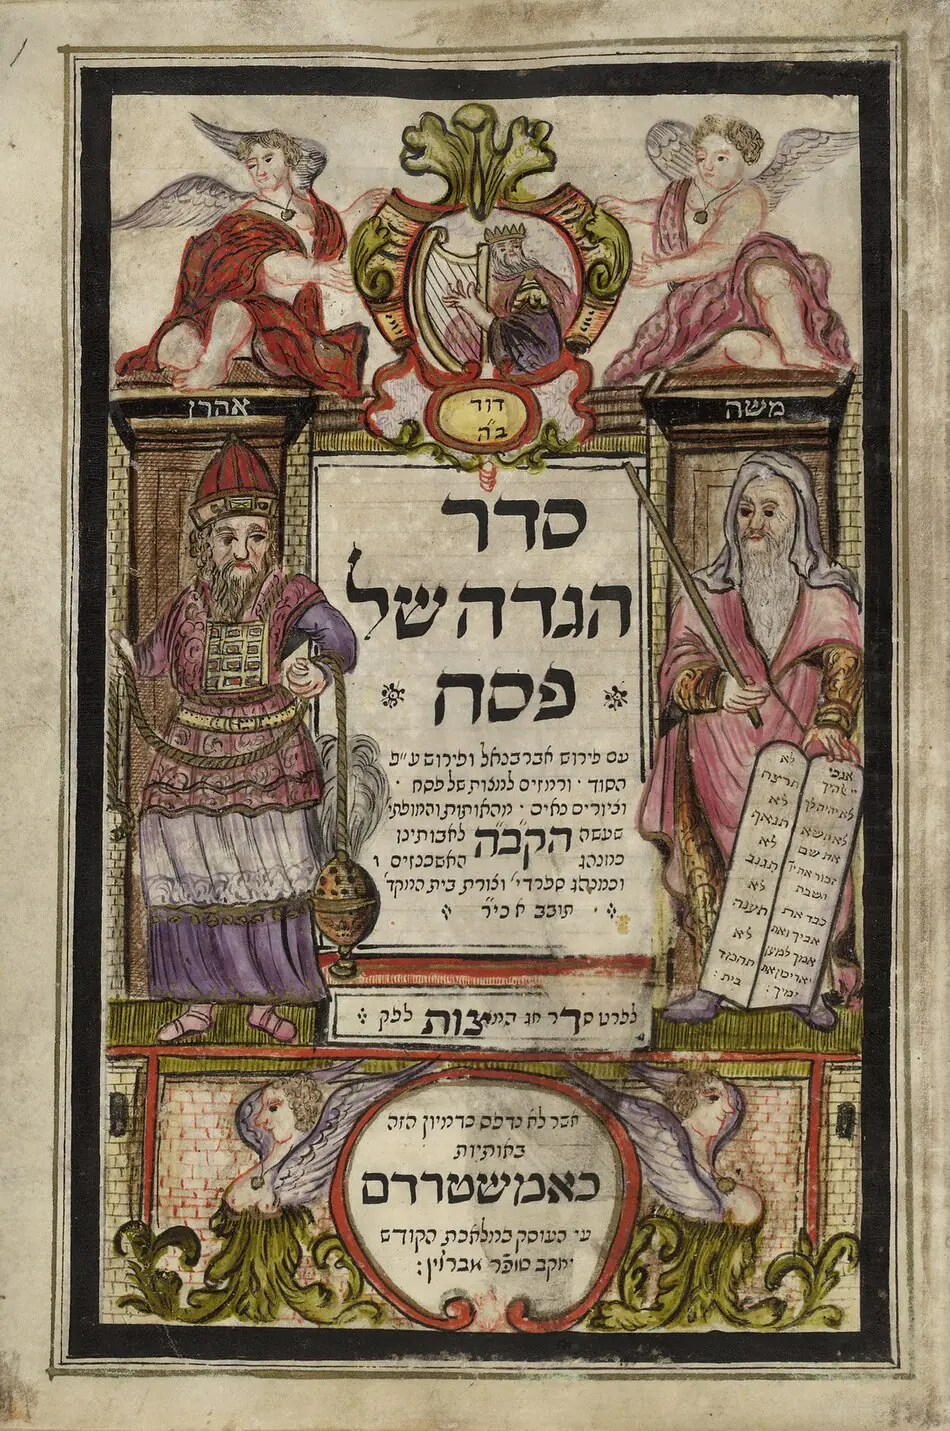 דוד
ב״ה
משה
אהרן
סדר
הגדה של
פסח
עם פירוש אברבנאל ופירוש ע״פ
הסוד · ורמזים למצות של פסח ·
וציורים נאים · מהאותות והמופתי׳
שעשה הקב״ה לאבותינו
כמנהג האשכנזים ו
וכמנהג ספרדי׳ וצורת בית המקד׳
תובב אכי״ר
לפרט סדר חג המצות לפק
אשר לא נדפס כדמיון הזה
באותיות
באמשטרדם
ע״י העוסק במלאכת הקודש
יעקב סופר
אנכי
יי׳ אלהיך
לא יהיה לך
לא תשא
את שם
זכור את יו׳
השבת
כבד את
אביך ואת
אמך למען
יאריכון את
ימיך :
לא
תרצח
לא
תנאף
לא
תגנב
לא
תענה
לא
תחמד
בית :